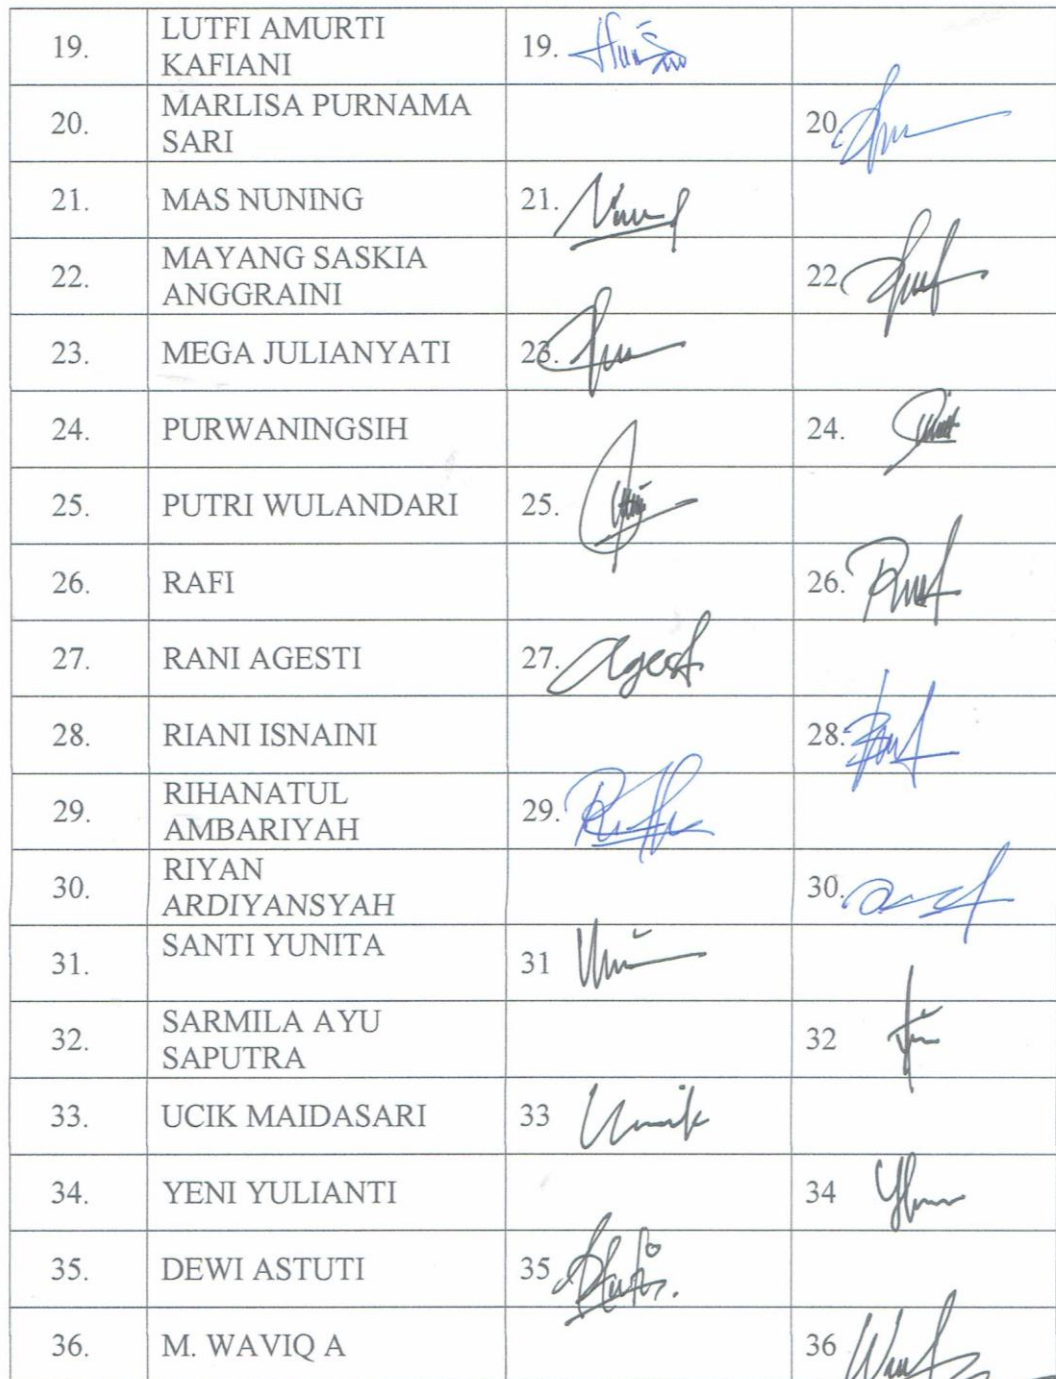 19. LUTFI AMURTI 19.
KAFIANI
20. MARLISA PURNAMA 20.
SARI
21. MAS NUNING 21.
22. MAYANG SASKIA 22
ANGGRAINI
23. MEGA JULIANYATI 23.
24. PURWANINGSIH 24.
25. PUTRI WULANDARI 25.
26. RAFI 26.
27. RANI AGESTI 27. Agest
28. RIANI ISNAINI 28.
29. RIHANATUL 29.
AMBARIYAH
30. RIYAN 30.
ARDIYANSYAH
31. SANTI YUNITA 31
32. SARMILA AYU 32
SAPUTRA
33. UCIK MAIDASARI 33
34. YENI YULIANTI 34
35. DEWI ASTUTI 35
36. M. WAVIQ A 36